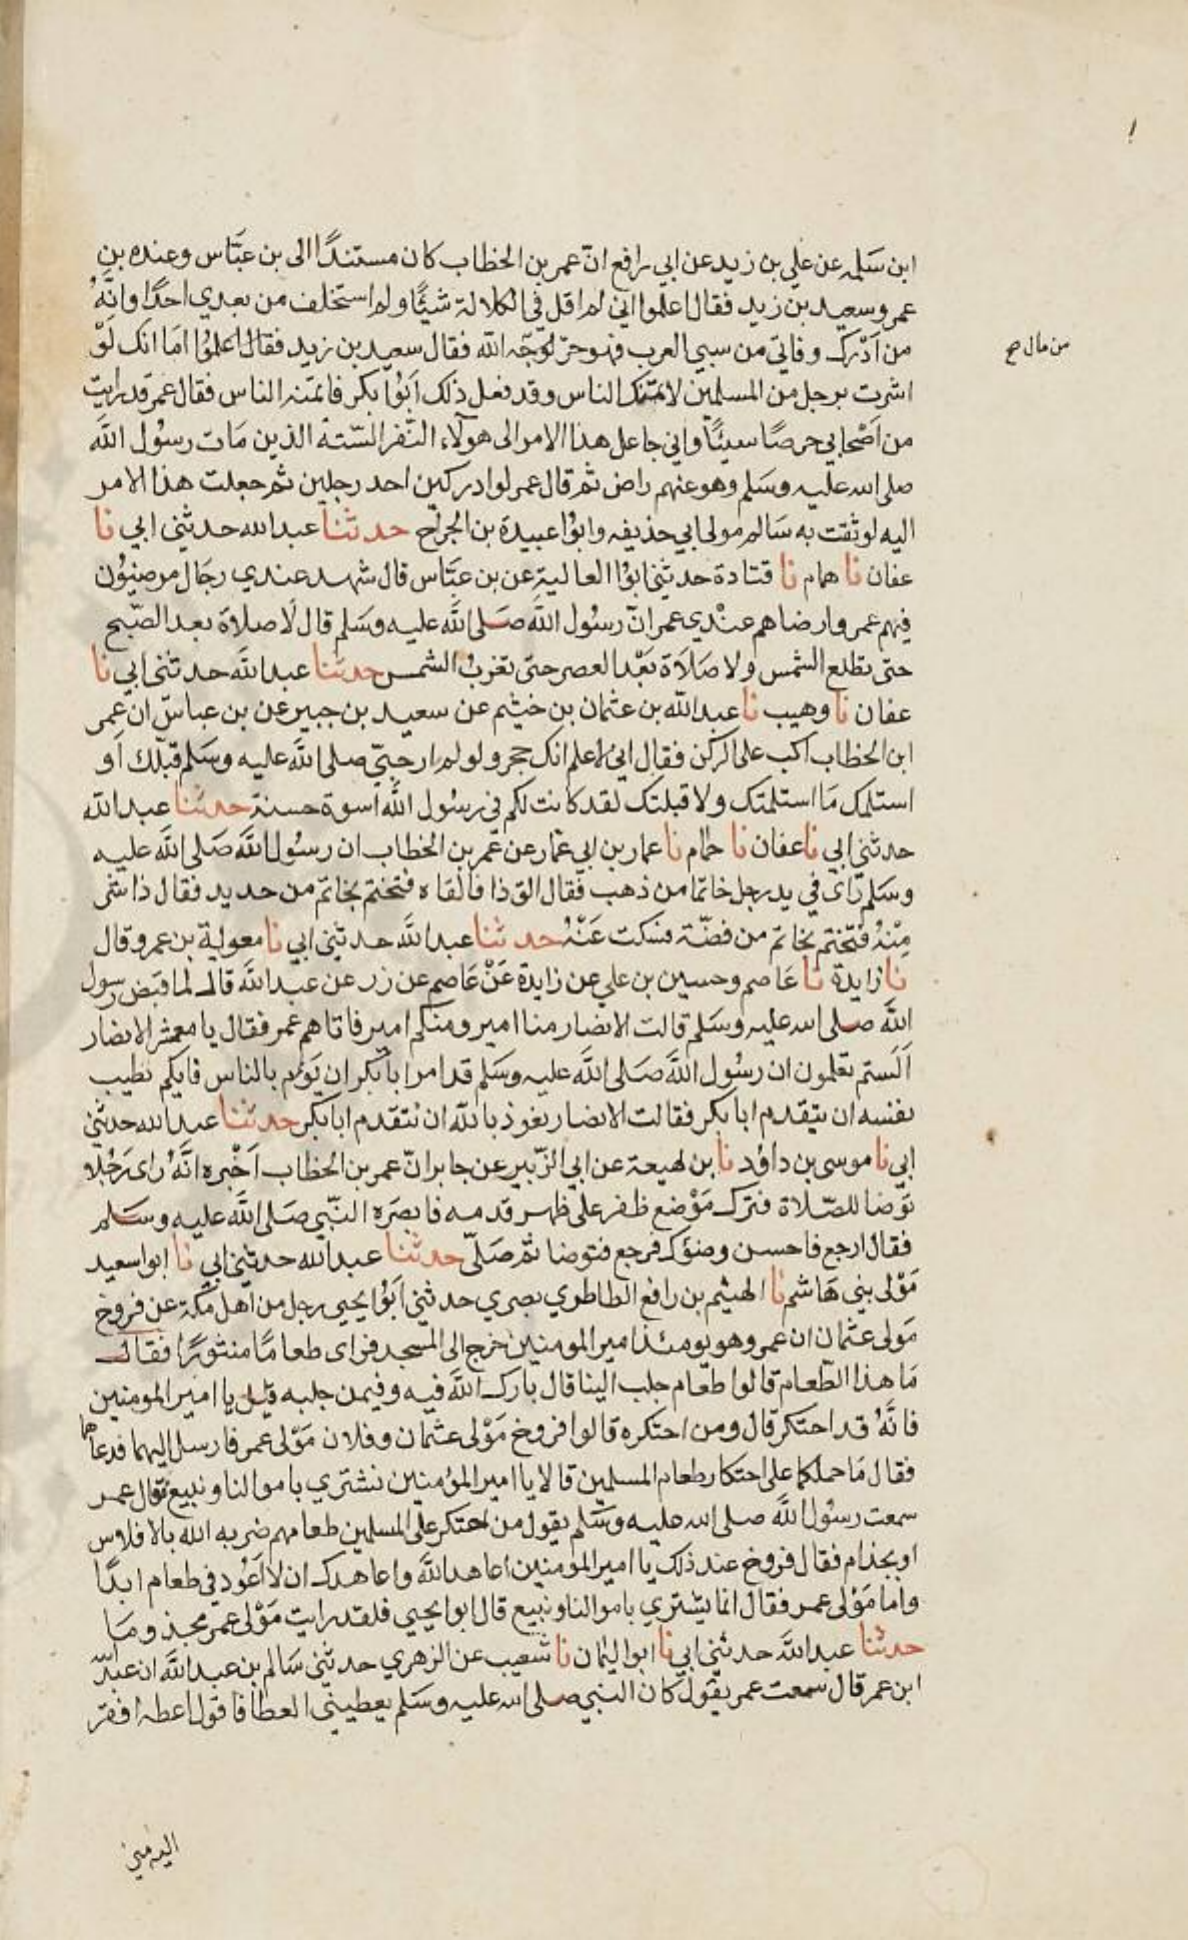 ابن سَلمه عن علي بن زيد عن ابي رافع انّ عمر بن الخطاب كان مستندًا الى بن عبّاس وعنده بن
عمر وسعيد بن زيد فقال اعلموا اني لم اقل في الكلالة شيئًا ولم استخلف من بعدي احدًا وانّهُ
من اَدْرك وفاتي من سبي العرب فهو حرّ لوجّه الله فقال سعيد بن زيد فقال اعلموُا امَا انك لَوْ
من مال صح
اشرت برجل من المسلمين لائتمنك الناس وقد فعل ذلك اَبوُا بكر فائتمنه الناس فقال عمر قد رايت
من اَصْحابي حرصًا سيئًا واني جاعل هذا الامر الى هولآء النّفر السّتة الذين مَات رسوُل اللّه
صلى الله عليه وسَلم وهو عنهم راض ثمّ قال عمر لو ادركني احد رجلين ثم جعلت هذا الامر
اليه لوثقت به سَالم مولى ابي حذيفه وابوُا عبيدة بن الجراح حدثنا عبد الله حدثني ابي نا
عفان نا همام نا قتادة حدثني ابوُا العالية عن بن عبّاس قال شهد عندي رجَال مرضيوُن
فيهم عمر وارضاهم عنْدي عمر انّ رسوُل اللّه صَلى اللّه عليه وسَلم قال لَا صلاة بعد الصّبح
حتى تطلع الشمس ولا صَلَاة بَعْد العصر حتى تغربُ الشمس حدثنا عبد اللّه حدثني ابي نا
عفان نا وهيب نا عبد اللّه بن عثمان بن خثيم عن سعيد بن جبير عن بن عباس انّ عمر
ابن الخطاب اكب على الركن فقال اني لاعلم انك حجر ولو لم ار حبيّ صلى اللّه عليه وسَلم قبّلك اَو
استلمك مَا استلمتك ولا قبلتك لقد كانت لكم في رسوُل اللّه اسوة حسنة حدثنا عبد اللّه
حدثني ابي نا عفان نا حمام نا عمار بن ابي عمار عن عمر بن الخطاب ان رسوُل اللّه صَلى اللّه عليه
وسَلم رَاى في يد رجل خاتما من ذهب فقال الق ذا فالقاه فتختم بخاتم من حديد فقال ذا شر
مِنْهُ فتختم بخاتم من فضّة فسكت عَنْهُ حدثنا عبد اللّه حدثني ابي نا معوية بن عمرو قال
نا زايدة نا عاصم وحسين بن علي عن زايدة عَنْ عَاصم عن زر عن عبد اللّه قال لما قبض رسول
اللّه صلى الله عليه وسَلم قالت الانصار منا امير ومنكم امير فاتاهم عمر فقال يا معشر الانصار
اَلَستم تعلمون ان رسُول اللّه صَلى اللّه عليه وسَلم قد امر ابا بكر ان يَوُم بالناس فايكم تطيب
نفسه ان يتقدم ابا بكر فقالت الانصار نعوذ باللّه ان نتقدم ابا بكر حدثنا عبد الله حدثني
ابي نا موسى بن داوُد نا بن لهيعة عن ابي الزّبير عن جابر انّ عمر بن الخطاب اَخْبره انَّهُ رَاى رَجُلا
توَضا للصّلاة فترك مَوْضع ظفر على ظهر قدمه فابصَره النّبي صَلى اللّه عليه وسَلم
فقال ارجع فاحسن وضؤك فرجع فتوضا ثم صَلّى حدثنا عبد اللّه حدثني ابي نا ابو اسعيد
مَوْلى بني هَاشم نا الهيثم بن رافع الطاطري بصري حدثني اَبوُا يحيي رجل من اَهل مكة عن فروخ
مَولى عثمان ان عمر وهو يومئذ امير المومنين خرج الى المسجد فراى طعامًا منثورًا فقال
مَا هذا الطّعام قالوا طعَام جلب الينا قال بارك اللّه فيه وفيمن جلبه قيل يا امير المومنين
فانّهُ قد احتكر قال ومن احتكره قالوا فروخ مَوْلى عثمان وفلان مَوْلى عمر فارسل اليهما فدعاهما
فقال مَا حملكما على احتكار طعام المسلمين قالا يا امير المؤمنين نشتري باموالنا ونبيع فقال عمر
سمعت رسوُل اللّه صلى الله عليه وسَلم يقول من احتكر على المسلمين طعامهم ضربه الله بالافلاس
او بجذام فقال فروخ عند ذلك يا امير المومنين اعاهد اللّه واعاهدك ان لا اَعوُد في طعام ابدًا
واما مَوْلى عمر فقال انما نشتري باموالنا ونبيع قال ابو ايحيي فلقد رايت مَوْلى عمر مجذوما
حدثنا عبد اللّه حدثني ابي نا ابو اليمان نا شعيب عن الزهري حدثني سَالم بن عبد اللّه ان عبد الله
ابن عمر قال سمعت عمر يقول كان النبي صلى الله عليه وسَلم يعطيني العطا فاقول اعطه افقر
اليه مني